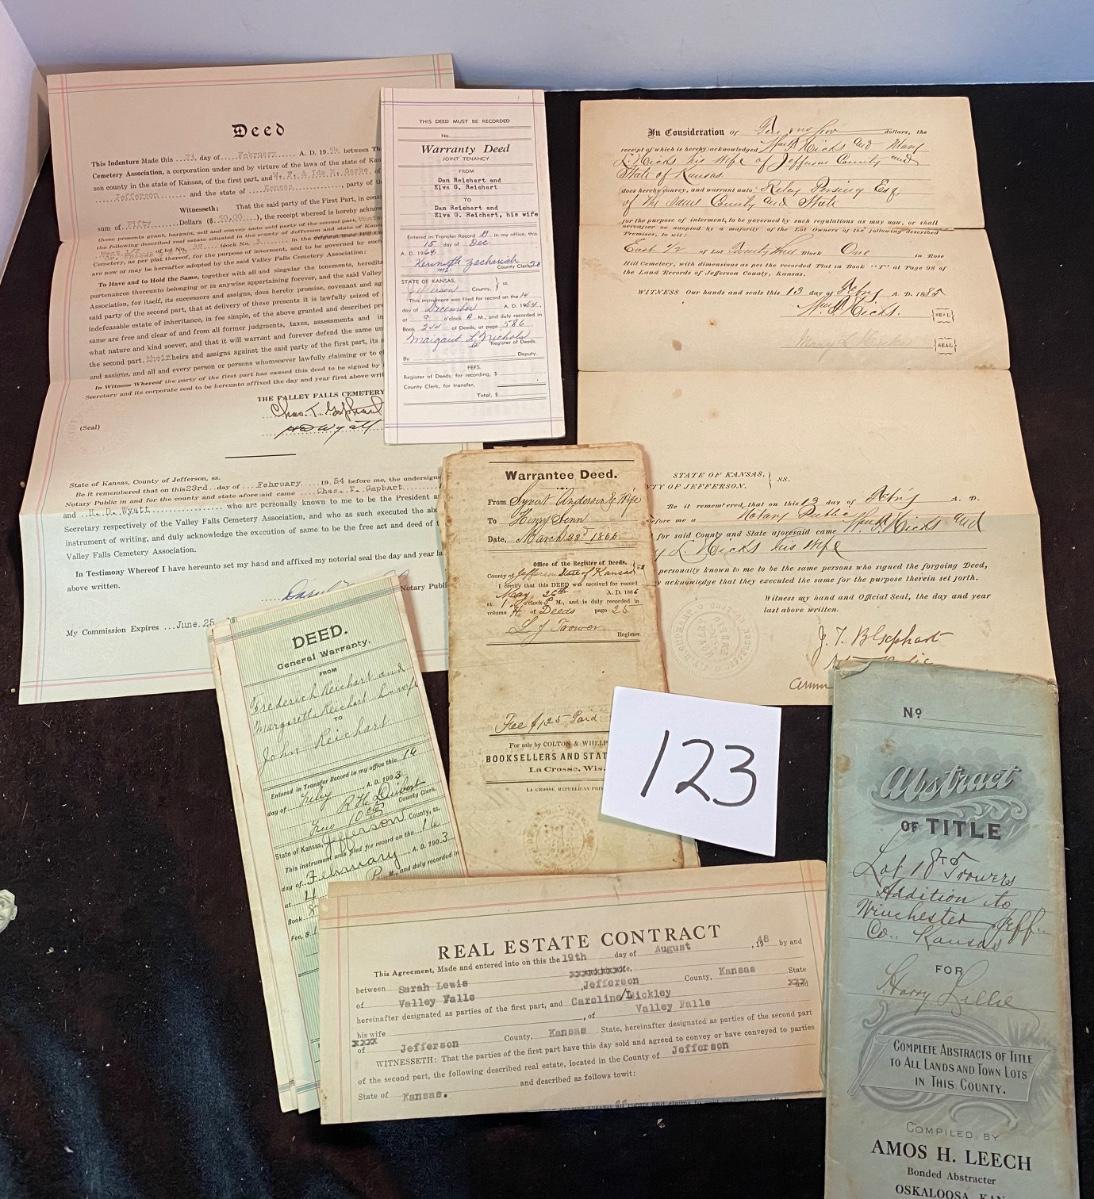 Deed
This Indenture Made this 23 day of February A. D. 19
Cemetery Association, a corporation under and by virtue of the laws of the state of
son county in the state of Kansas, of the first part, and
Jefferson and the state of Kansas party of
Witnesseth: That the said party of the First Part, in
sum of Fifty Dollars ($ 50.00), the receipt whereof is hereby
To Have and to Hold the Same, together with all and singular the tenements,
partenances thereto belonging or in anywise appertaining forever, and the said Valley
Association, for itself, its successors and assigns, does hereby promise, covenant and
said party of the second part, that at delivery of these presents it is lawfully seized of
indefeasible estate of inheritance, in fee simple, of the above granted and described
same are free and clear of and from all former judgments, taxes, assessments and
what nature and kind soever, and that it will warrant and forever defend the same
the second part, their heirs and assigns against the said party of the first part, its
and assigns, and all and every person or persons whomsoever lawfully claiming or to
In Witness Whereof the party of the first part has caused this deed to be signed by
Secretary and its corporate seal to be hereunto affixed the day and year first above
THE VALLEY FALLS CEMETERY
(Seal)
H D Wyatt
State of Kansas, County of Jefferson, ss.
Be it remembered that on this 23rd. day of February 19 54 before me, the undersigned
Notary Public in and for the county and state aforesaid came Chas. F. Gephart
and H. D. Wyatt who are personally known to me to be the President
Secretary respectively of the Valley Falls Cemetery Association, and who as such executed the
instrument of writing, and duly acknowledge the execution of same to be the free act and deed of
Valley Falls Cemetery Association.
In Testimony Whereof I have hereunto set my hand and affixed my notorial seal the day and year
above written.
Notary Public
My Commission Expires June. 25
THIS DEED MUST BE RECORDED
No.
Warranty Deed
JOINT TENANCY
FROM
Dan Reichart and
Elva G. Reichart
TO
Dan Reichart and
Elva G. Reichart, his wife
Entered in Transfer Record in my office, this
15 day of Dec
A. D. 1964
Kenneth Zachariah
County Clerk
STATE OF KANSAS,
Jefferson County, ss.
This instrument was filed for record on the 14
day of December A. D. 1964,
at 9 o'clock A M., and duly recorded in
Book 244 of Deeds, at page 586
Margaret L Nichols
Register of Deeds.
By Deputy.
FEES.
Register of Deeds, for recording, $
County Clerk, for transfer,
Total, $
In Consideration of dollars, the
receipt of which is hereby acknowledged Wm R Hicks and Mary
L Hicks his Wife of Jefferson County and
State of Kansas
does hereby convey, and warrant unto
of the Same County and State
for the purpose of interment, to be governed by such regulations as may now, or shall
hereafter be adopted by a majority of the Lot Owners of the following described
Premises, to wit:
East 1/2 of Lot Block One in Rose
Hill Cemetery, with dimensions as per the recorded Plat in Book at Page 98 of
the Land Records of Jefferson County, Kansas.
WITNESS Our hands and seals this 13 day of Feby A. D. 1885
Wm R Hicks. SEAL
Mary L Hicks SEAL
STATE OF KANSAS, ss.
TY OF JEFFERSON.
Be it remembered, that on this 13 day of Feby A. D.
before me a Notary Public
for said County and State aforesaid came Wm R Hicks and
y L Hicks his Wife
personally known to me to be the same persons who signed the foregoing Deed,
y acknowledge that they executed the same for the purpose therein set forth.
Witness my hand and Official Seal, the day and year
last above written.
J. T. B Gephart
Warrantee Deed.
From Synert Anderson & Wife
To Henry Senn
Date, March 22d 1866
Office of the Register of Deeds,
County of Jefferson State of Kansas ss
I certify that this DEED was received for record
May 26th A. D. 1866
at 1 o'clock P M., and is duly recorded in
volume H of Deeds page 25
L J Trower
Register.
Fee $1,25 Paid
For sale by COLTON &
BOOKSELLERS AND STAT
La Crosse, Wis.
123
DEED.
General Warranty.
FROM
Frederick Reichart and
Margaretta Reichart his wife
TO
John Reichart
Entered in Transfer Record in my office this 14
day of Feby A. D. 1903
County Clerk.
State of Kansas, Jefferson County, ss.
This instrument was filed for record on the 14
day of February A. D. 1903
at M., and duly recorded in
Book
Fee, $
REAL ESTATE CONTRACT
This Agreement, Made and entered into on this the 19th day of August, 1948 by and
between Sarah Lewis
of Valley Falls, Jefferson County, Kansas State
hereinafter designated as parties of the first part, and Caroline Lickley
his wife, of Valley Falls
xxxx
of Jefferson County, Kansas State, hereinafter designated as parties of the second part
WITNESSETH: That the parties of the first part have this day sold and agreed to convey or have conveyed to parties
of the second part, the following described real estate, located in the County of Jefferson
State of Kansas. and described as follows towit:
No
Abstract
OF TITLE
Lot 18 Trowers
Addition to
Winchester Jeff
Co. Kansas
FOR
Harry Lillie
COMPLETE ABSTRACTS OF TITLE
TO ALL LANDS AND TOWN LOTS
IN THIS COUNTY.
COMPILED BY
AMOS H. LEECH
Bonded Abstracter
OSKALOOSA, KAN